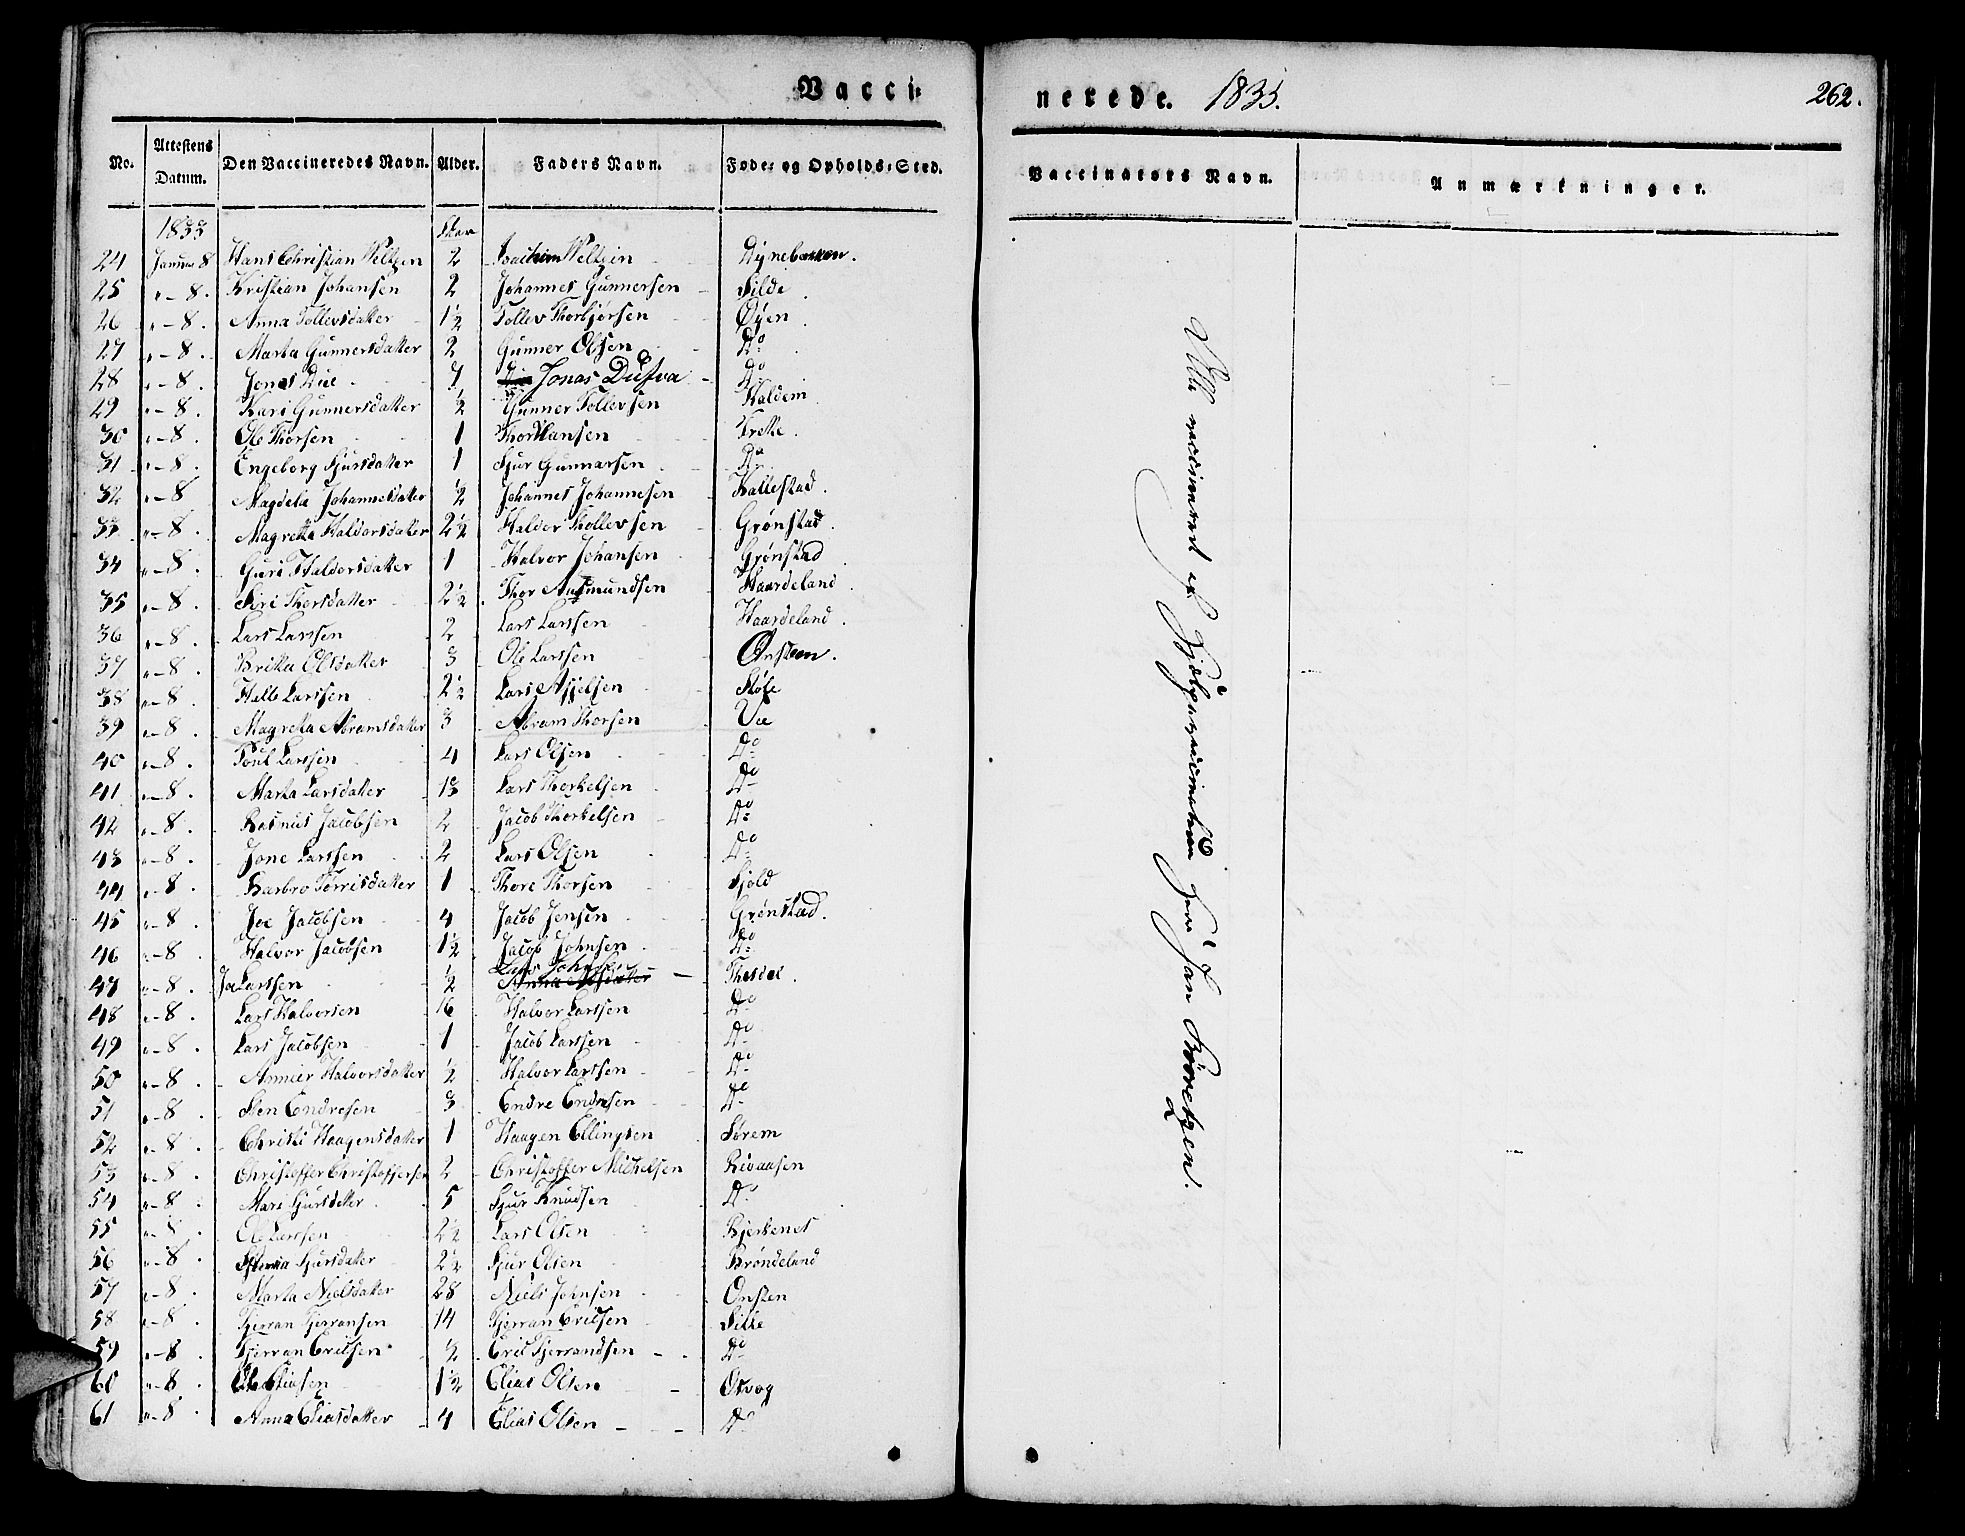 Vacci-
nerede. 1833.
262.
No. Attestens Datum. Den Vaccineredes Navn. Alder. Faders Navn. Føde- og Opholds-Sted.
Vaccinators Navn. Anmærkninger.
1833
24 Januar 8 Hans Christian Weltzen 2 Joachim Weltzin
25 " - 8. Kristian Johansen 2 Johannes Gunnersen Silde
26 " - 8. Anna Tollevsdatter 1½ Tollev Thorbjørsen Øyen
27 " - 8. Marta Gunnersdatter 2 Gunner Olsen Do
28 " - 8. Jonas Due 7 Jonas Dufva Do
29 " - 8. Kari Gunnersdatter ½ Gunner Tollevsen Haldem
30 " - 8. Ole Thorsen 1 Thor Hansen Frette
31 " - 8. Engeborg Sjursdatter 1 Sjur Gunnarsen Do
32 " - 8 Magdela Johannesdatter ½ Johannes Johannesen Kallestad.
33 " - 8. Magretta Haldorsdatter 2½ Haldor Thollevsen Grønstad.
34 " - 8. Guri Haldorsdatter 1 Halvor Johansen Grønstad
35 " - 8. Siri Thorsdatter 2½ Thor Aasmundsen Haardeland.
36 " - 8. Lars Larssen 2 Lars Larssen Haardeland.
37 " - 8. Britta Olsdatter 3 Ole Larssen Ønsteen.
38 " - 8 Helle Larssen 2½ Lars
39 " - 8. Magreta Abramsdatter 3 Abram Thorsen Vie
40 " - 8. Poul Larssen 4 Lars Olsen Do
41 " - 8. Marta Larsdatter 13 Lars Thorkelsen Do
42 " - 8. Rasmus Jacobsen 2 Jacob Thorkelsen Do
43 " - 8. Jone Larssen 2 Lars Olsen Do
44 " - 8. Barbro Torrisdatter 1 Thore Thorsen Fjold
45 " - 8. Joe Jacobsen 4 Jacob Jensen Grønstad.
46 " - 8. Halvor Jacobsen 1½ Jacob Johnsen Do
47 " - 8. Joe Larssen ½ Lars Johnsen Thesdal.
48 " - 8. Lars Halvorsen 16 Halvor Larssen Do
49 " - 8. Lars Jacobsen 1 Jacob Larssen Do
50 " - 8. Annier Halvorsdatter ½ Halvor Larssen Do
51 " - 8. Sten Endresen 3 Endre Endresen Do
52 " - 8. Christi Haagensdatter 1 Haagen Ellingsen Sørem
53 " - 8. Christoffer Christoffersen 2 Christoffer Michelsen Rivaasen
54 " - 8 Mari Sjursdatter 5 Sjur Knudsen Do
55 " - 8. Ole Larssen 2½ Lars Olsen Bjerkenes
56 " - 8. Sjursdatter 2½ Sjur Olsen Brøndeland
57 " - 8. Marta Nielsdatter 28 Niels Johnsen Onsten
58 " - 8. Tjerran Tjerransen 14 Tjerran Ericsen
59 " - 8. Tjerran Ericsen ½ Eric Tjerrandsen Do
60 " - 8. Ole Eliasen 1½ Elias Olsen Otvog
61 " - 8. Anna Eliasdatter 4 Elias Olsen Do